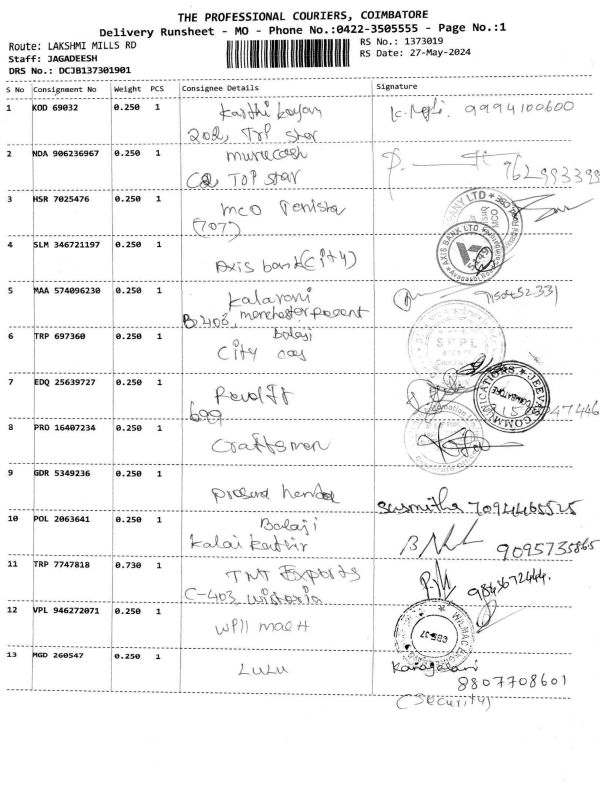 THE PROFESSIONAL COURIERS, COIMBATORE
Delivery Runsheet - MO - Phone No.:0422-3505555 - Page No.:1
Route: LAKSHMI MILLS RD
RS No.: 1373019
Staff: JAGADEESH
RS Date: 27-May-2024
DRS No.: DCJB137301901
S No Consignment No Weight PCS Consignee Details Signature
1 KOD 69032 0.250 1 9994100600
202, TOP star
2 NDA 906236967 0.250 1
TOP star
3 HSR 7025476 0.250 1 MCO
(707)
4 SLM 346721197 0.250 1 Axis bank (City)
AXIS BANK LTD
5 MAA 574096230 0.250 1 Kalavani
B 403,
6 TRP 697360 0.250 1 Balaji
City
SPPL
7 EDQ 25639727 0.250 1
699
JEEVAS COMMUNICATIONS
COIMBATORE
8 PRO 16407234 0.250 1 Craftsman
9 GDR 5349236 0.250 1 Susmitha 7094465525
10 POL 2063641 0.250 1 Balaji
Kalai Kathir 9095735865
11 TRP 7747818 0.730 1 TNT Exports
C-403, 9843672444.
12 VPL 946272071 0.250 1
CBE-37
13 MGD 260547 0.250 1 LULU
8807708601
(Security)